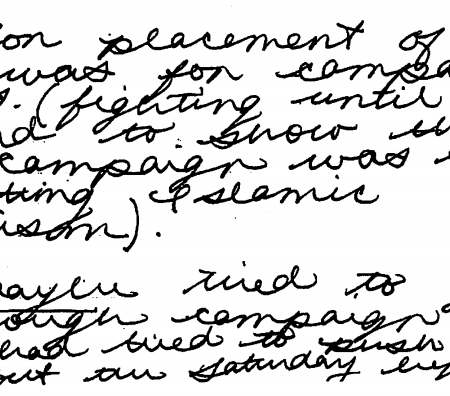 on placement of
was for campa
. (fighting until
nd to show
campaign was
ting Islamic
ison).
tried to
ough campaign
had tried to push
out an Saturday